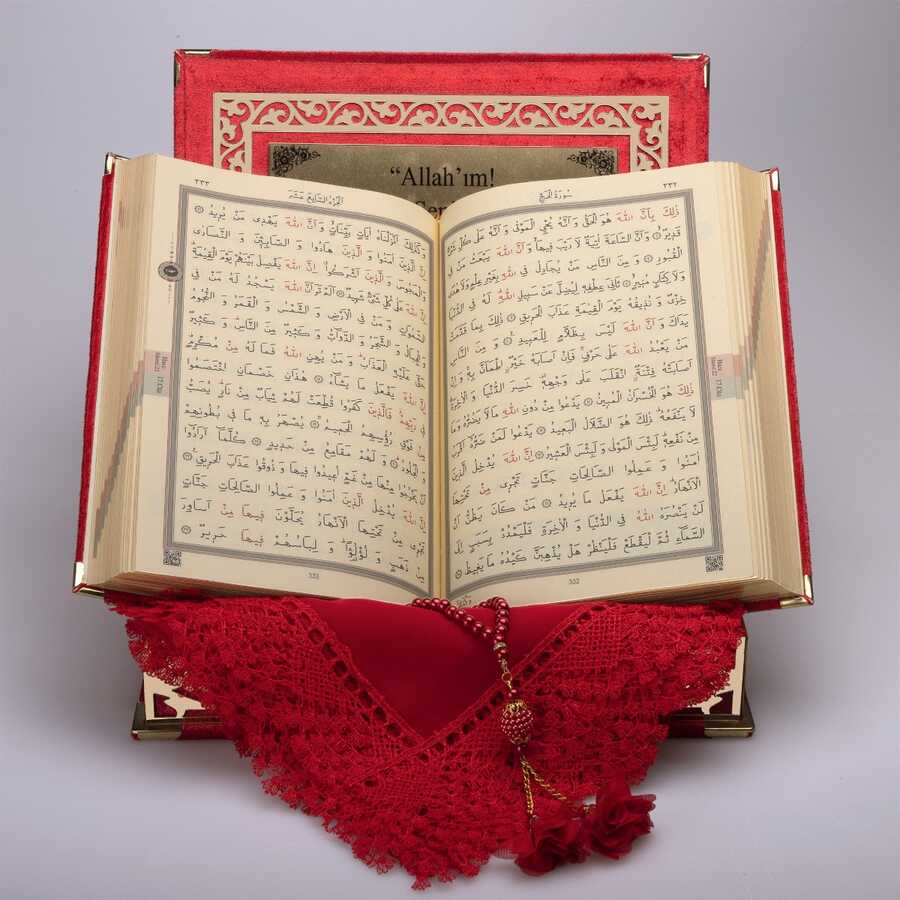 “Allah’ım!
٢٣٢
سُورَةُ الْحَجِّ
ذٰلِكَ بِاَنَّ اللّٰهَ هُوَ الْحَقُّ وَاَنَّهُ يُحْيِ الْمَوْتٰى وَاَنَّهُ عَلٰى كُلِّ شَيْءٍ
قَدِيرٌ ۞ وَاَنَّ السَّاعَةَ اٰتِيَةٌ لَا رَيْبَ فِيهَا وَاَنَّ اللّٰهَ يَبْعَثُ مَنْ فِي
الْقُبُورِ ۞ وَمِنَ النَّاسِ مَنْ يُجَادِلُ فِي اللّٰهِ بِغَيْرِ عِلْمٍ وَلَا هُدًى
وَلَا كِتَابٍ مُنِيرٍ ۞ ثَانِيَ عِطْفِهِ لِيُضِلَّ عَنْ سَبِيلِ اللّٰهِ لَهُ فِي الدُّنْيَا
خِزْيٌ وَنُذِيقُهُ يَوْمَ الْقِيٰمَةِ عَذَابَ الْحَرِيقِ ۞ ذٰلِكَ بِمَا قَدَّمَتْ
يَدَاكَ وَاَنَّ اللّٰهَ لَيْسَ بِظَلَّامٍ لِلْعَبِيدِ ۞ وَمِنَ النَّاسِ
مَنْ يَعْبُدُ اللّٰهَ عَلٰى حَرْفٍ فَاِنْ اَصَابَهُ خَيْرٌ اِطْمَاَنَّ بِهِ وَاِنْ
اَصَابَتْهُ فِتْنَةٌ اِنْقَلَبَ عَلٰى وَجْهِهِ خَسِرَ الدُّنْيَا وَالْاٰخِرَةَ
ذٰلِكَ هُوَ الْخُسْرَانُ الْمُبِينُ ۞ يَدْعُوا مِنْ دُونِ اللّٰهِ مَا لَا يَضُرُّهُ وَمَا
لَا يَنْفَعُهُ ذٰلِكَ هُوَ الضَّلَالُ الْبَعِيدُ ۞ يَدْعُوا لَمَنْ ضَرُّهُ اَقْرَبُ
مِنْ نَفْعِهِ لَبِئْسَ الْمَوْلٰى وَلَبِئْسَ الْعَشِيرُ ۞ اِنَّ اللّٰهَ يُدْخِلُ الَّذِينَ
اٰمَنُوا وَعَمِلُوا الصَّالِحَاتِ جَنَّاتٍ تَجْرِي مِنْ تَحْتِهَا
الْاَنْهَارُ اِنَّ اللّٰهَ يَفْعَلُ مَا يُرِيدُ ۞ مَنْ كَانَ يَظُنُّ اَنْ
لَنْ يَنْصُرَهُ اللّٰهُ فِي الدُّنْيَا وَالْاٰخِرَةِ فَلْيَمْدُدْ بِسَبَبٍ اِلَى
السَّمَاءِ ثُمَّ لْيَقْطَعْ فَلْيَنْظُرْ هَلْ يُذْهِبَنَّ كَيْدُهُ مَا يَغِيظُ ۞
332
٢٣٣
اَلْجُزْءُ السَّابِعُ عَشَرَ
وَكَذٰلِكَ اَنْزَلْنَاهُ اٰيَاتٍ بَيِّنَاتٍ وَاَنَّ اللّٰهَ يَهْدِي مَنْ يُرِيدُ ۞
اِنَّ الَّذِينَ اٰمَنُوا وَالَّذِينَ هَادُوا وَالصَّابِـِٔينَ وَالنَّصَارٰى
وَالْمَجُوسَ وَالَّذِينَ اَشْرَكُوا اِنَّ اللّٰهَ يَفْصِلُ بَيْنَهُمْ يَوْمَ الْقِيٰمَةِ
اِنَّ اللّٰهَ عَلٰى كُلِّ شَيْءٍ شَهِيدٌ ۞ اَلَمْ تَرَ اَنَّ اللّٰهَ يَسْجُدُ لَهُ مَنْ فِي
السَّمٰوَاتِ وَمَنْ فِي الْاَرْضِ وَالشَّمْسُ وَالْقَمَرُ وَالنُّجُومُ
وَالْجِبَالُ وَالشَّجَرُ وَالدَّوَابُّ وَكَثِيرٌ مِنَ النَّاسِ وَكَثِيرٌ
حَقَّ عَلَيْهِ الْعَذَابُ وَمَنْ يُهِنِ اللّٰهُ فَمَا لَهُ مِنْ مُكْرِمٍ
اِنَّ اللّٰهَ يَفْعَلُ مَا يَشَاءُ ۞ هٰذَانِ خَصْمَانِ اخْتَصَمُوا
فِي رَبِّهِمْ فَالَّذِينَ كَفَرُوا قُطِّعَتْ لَهُمْ ثِيَابٌ مِنْ نَارٍ يُصَبُّ
مِنْ فَوْقِ رُؤُسِهِمُ الْحَمِيمُ ۞ يُصْهَرُ بِهِ مَا فِي بُطُونِهِمْ
وَالْجُلُودُ ۞ وَلَهُمْ مَقَامِعُ مِنْ حَدِيدٍ ۞ كُلَّمَا اَرَادُوا
اَنْ يَخْرُجُوا مِنْهَا مِنْ غَمٍّ اُعِيدُوا فِيهَا وَذُوقُوا عَذَابَ الْحَرِيقِ ۞
اِنَّ اللّٰهَ يُدْخِلُ الَّذِينَ اٰمَنُوا وَعَمِلُوا الصَّالِحَاتِ جَنَّاتٍ
تَجْرِي مِنْ تَحْتِهَا الْاَنْهَارُ يُحَلَّوْنَ فِيهَا مِنْ اَسَاوِرَ
مِنْ ذَهَبٍ وَلُؤْلُؤًا وَلِبَاسُهُمْ فِيهَا حَرِيرٌ ۞
333